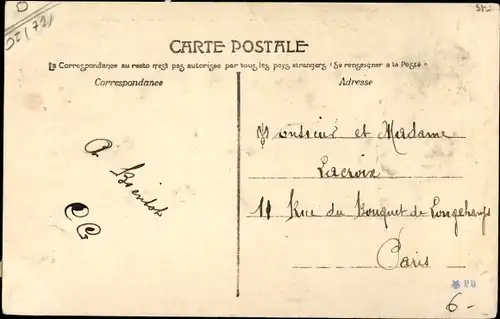 D
02 (77)
CARTE POSTALE
La Correspondance au recto n'est pas autorisée par tous les pays étrangers (Se renseigner à la Poste)
Correspondance
Adresse
A Bientot
CC
Monsieur et Madame
Lacroix
11 Rue du Bouquet de Longchamps
Paris
6-